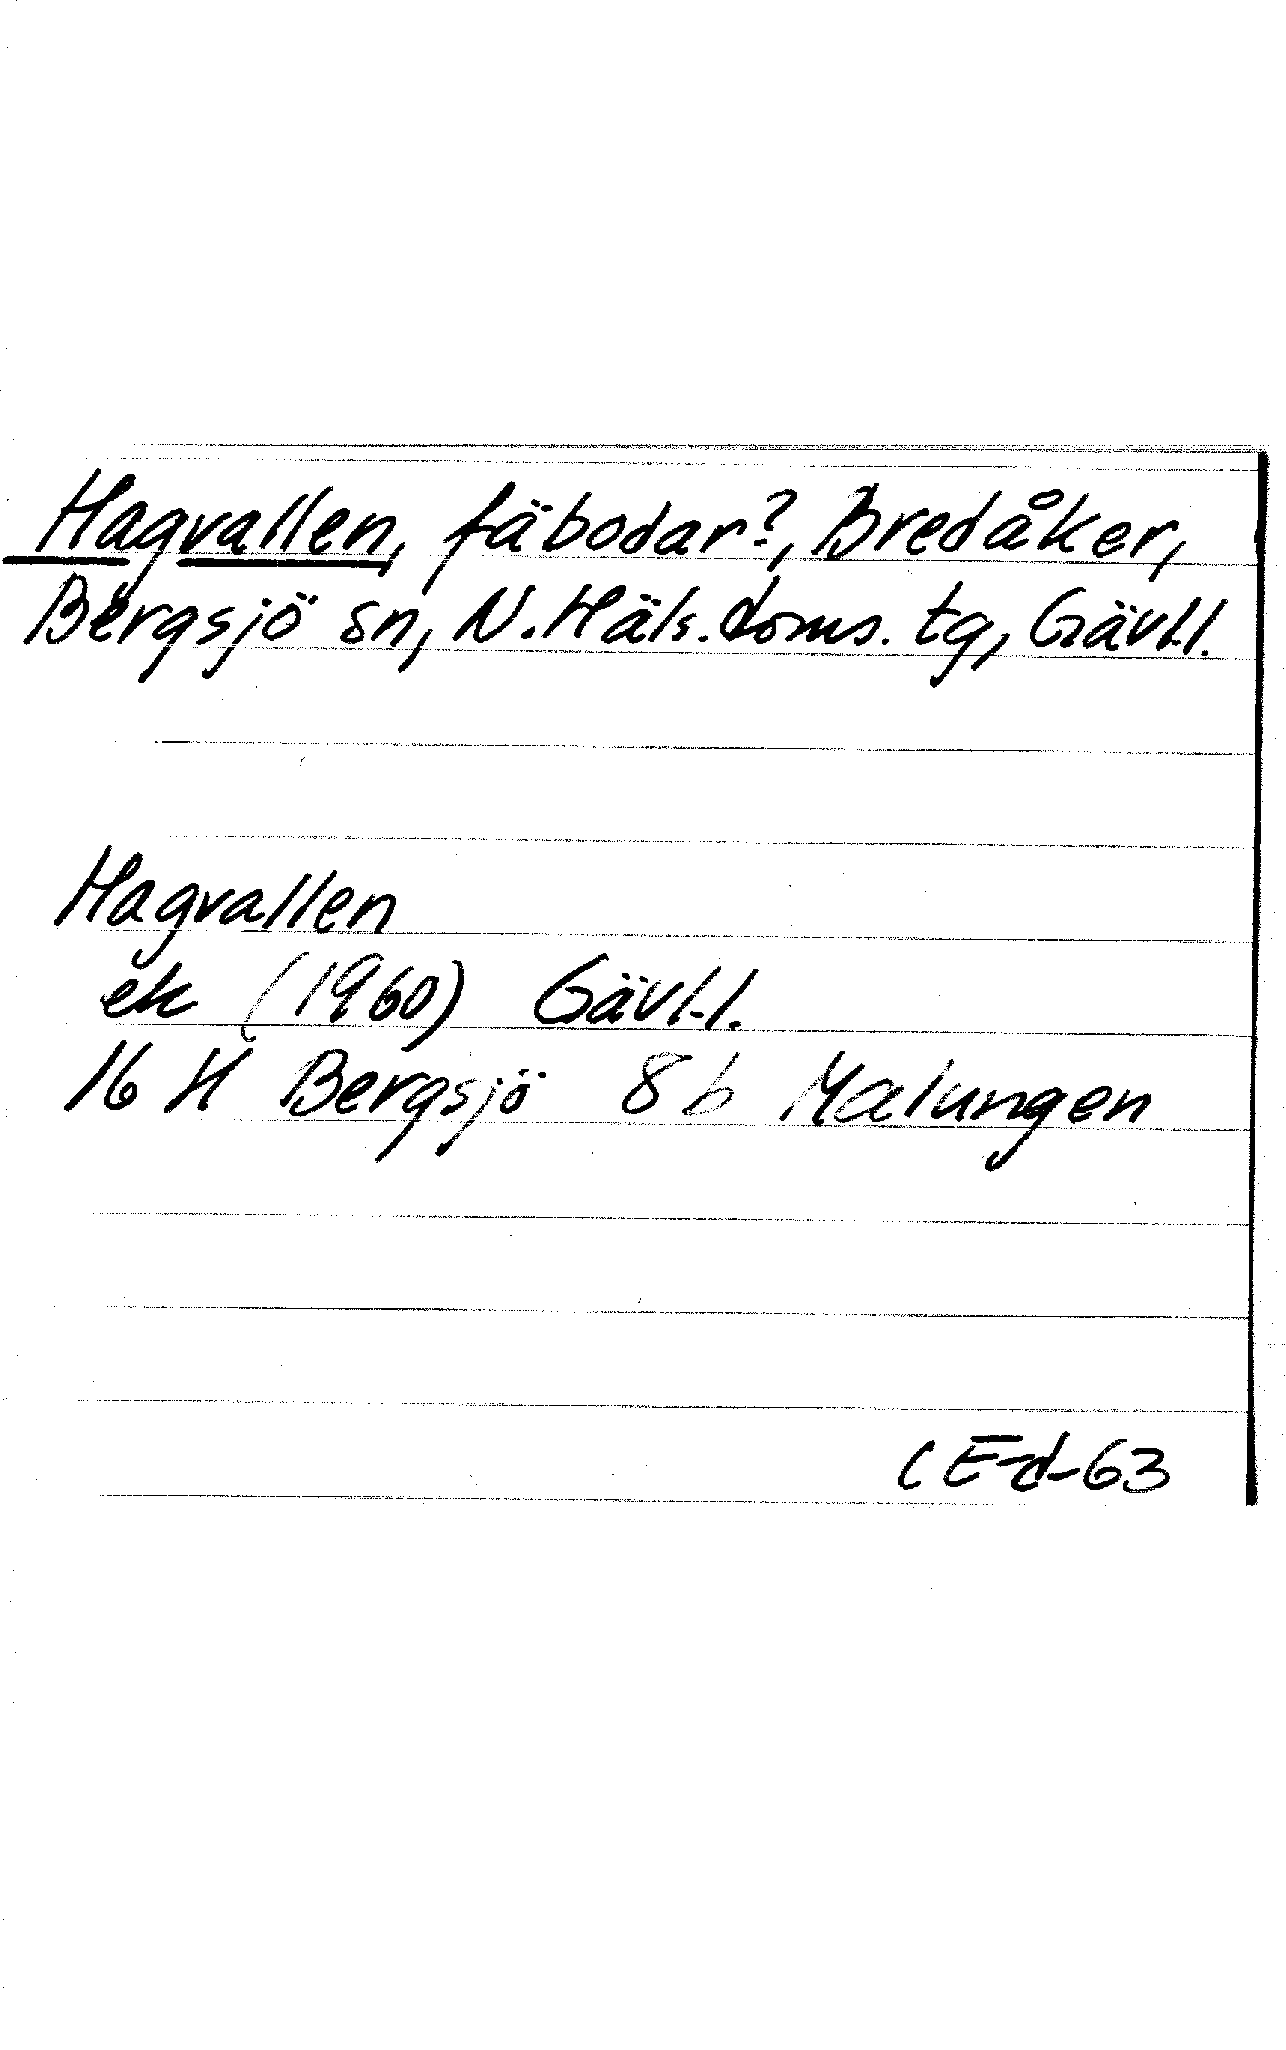 Hagvallen, fäbodar?, Bredåker,
Bergsjö sn, N. Häls. doms. tg, Gävl.l.
Hagvallen
ek (1960) Gävl.l.
16 H Bergsjö 8 b Malungen
CE-d-63